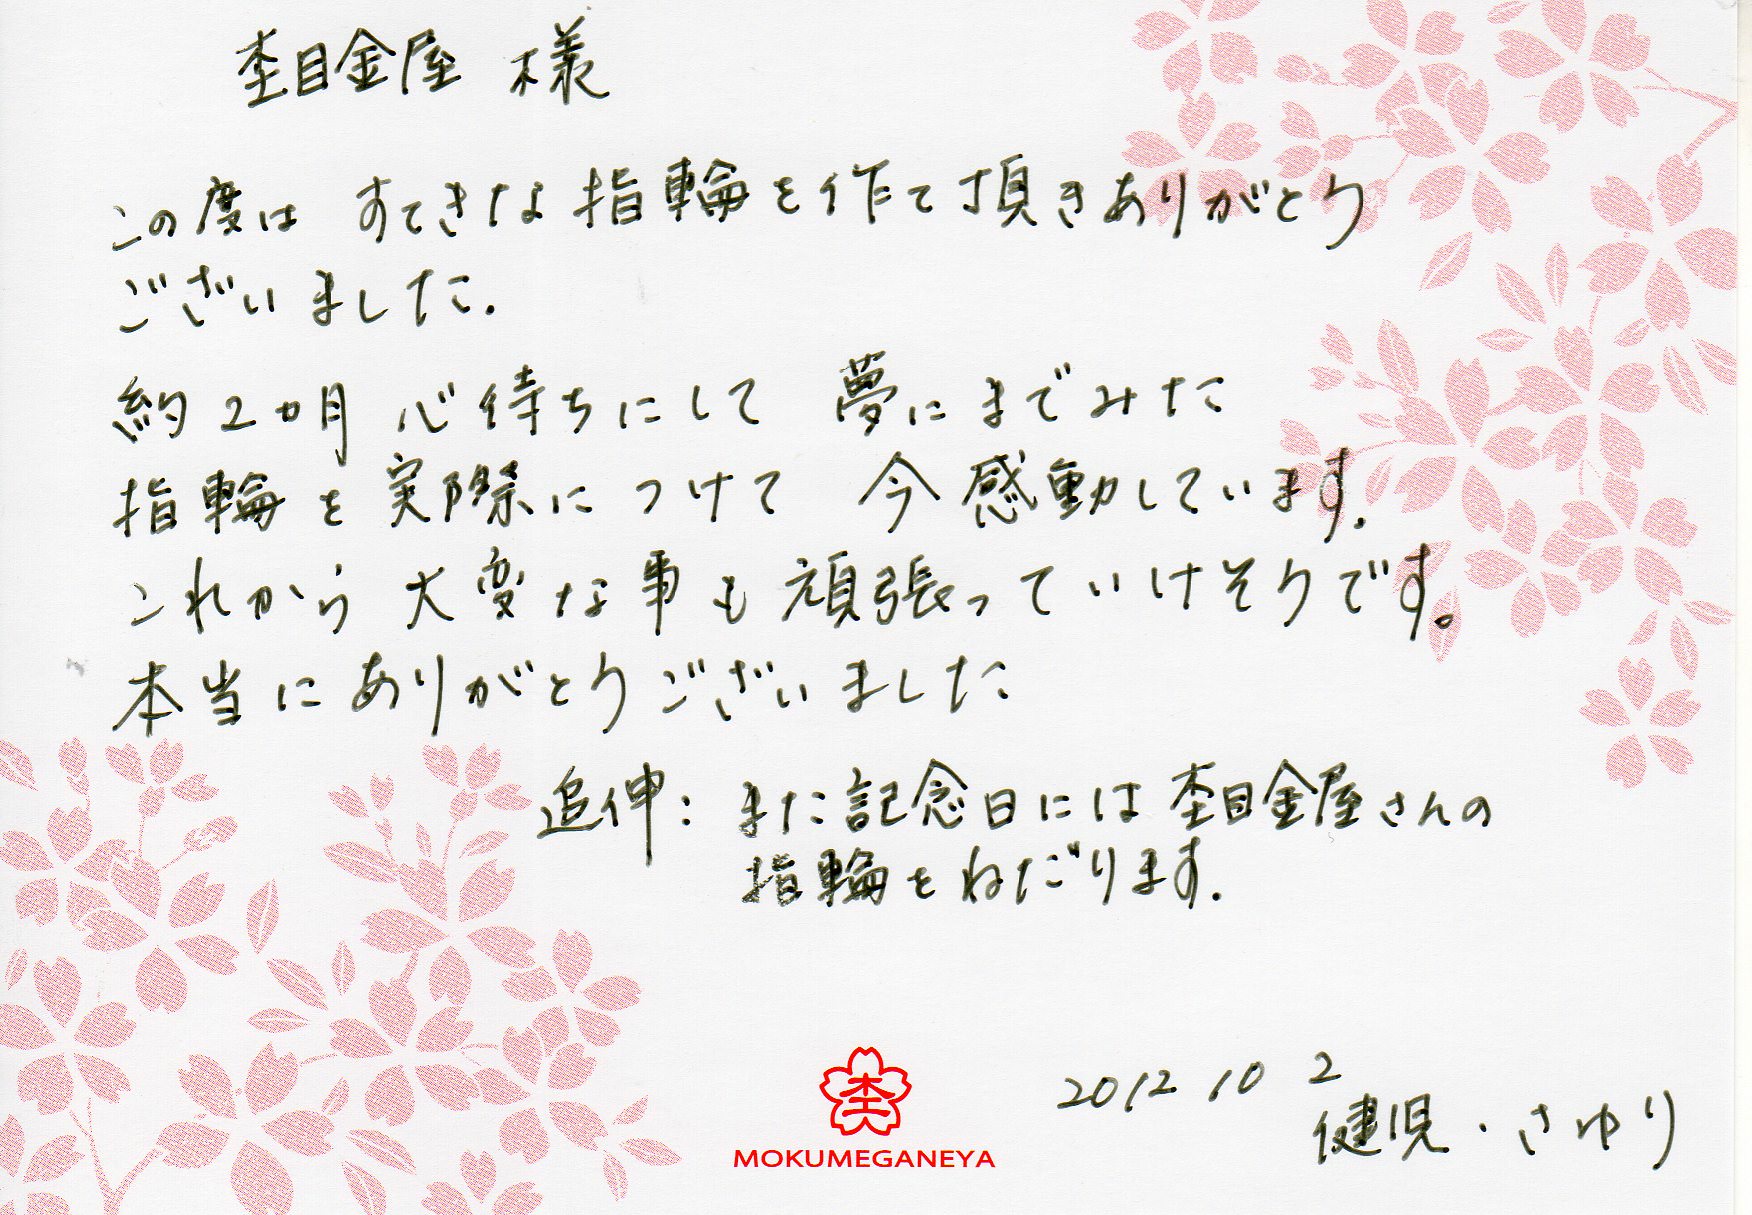 杢目金屋 様
この度は すてきな指輪を作て頂きありがとう
ございました.
約2カ月 心待ちにして 夢にまでみた
指輪を実際につけて 今感動しています.
これから大変な事も頑張っていけそうです。
本当にありがとうございました
追伸: また記念日には杢目金屋さんの
指輪をねだります.
杢
MOKUMEGANEYA
2012 10 2
健児・さゆり